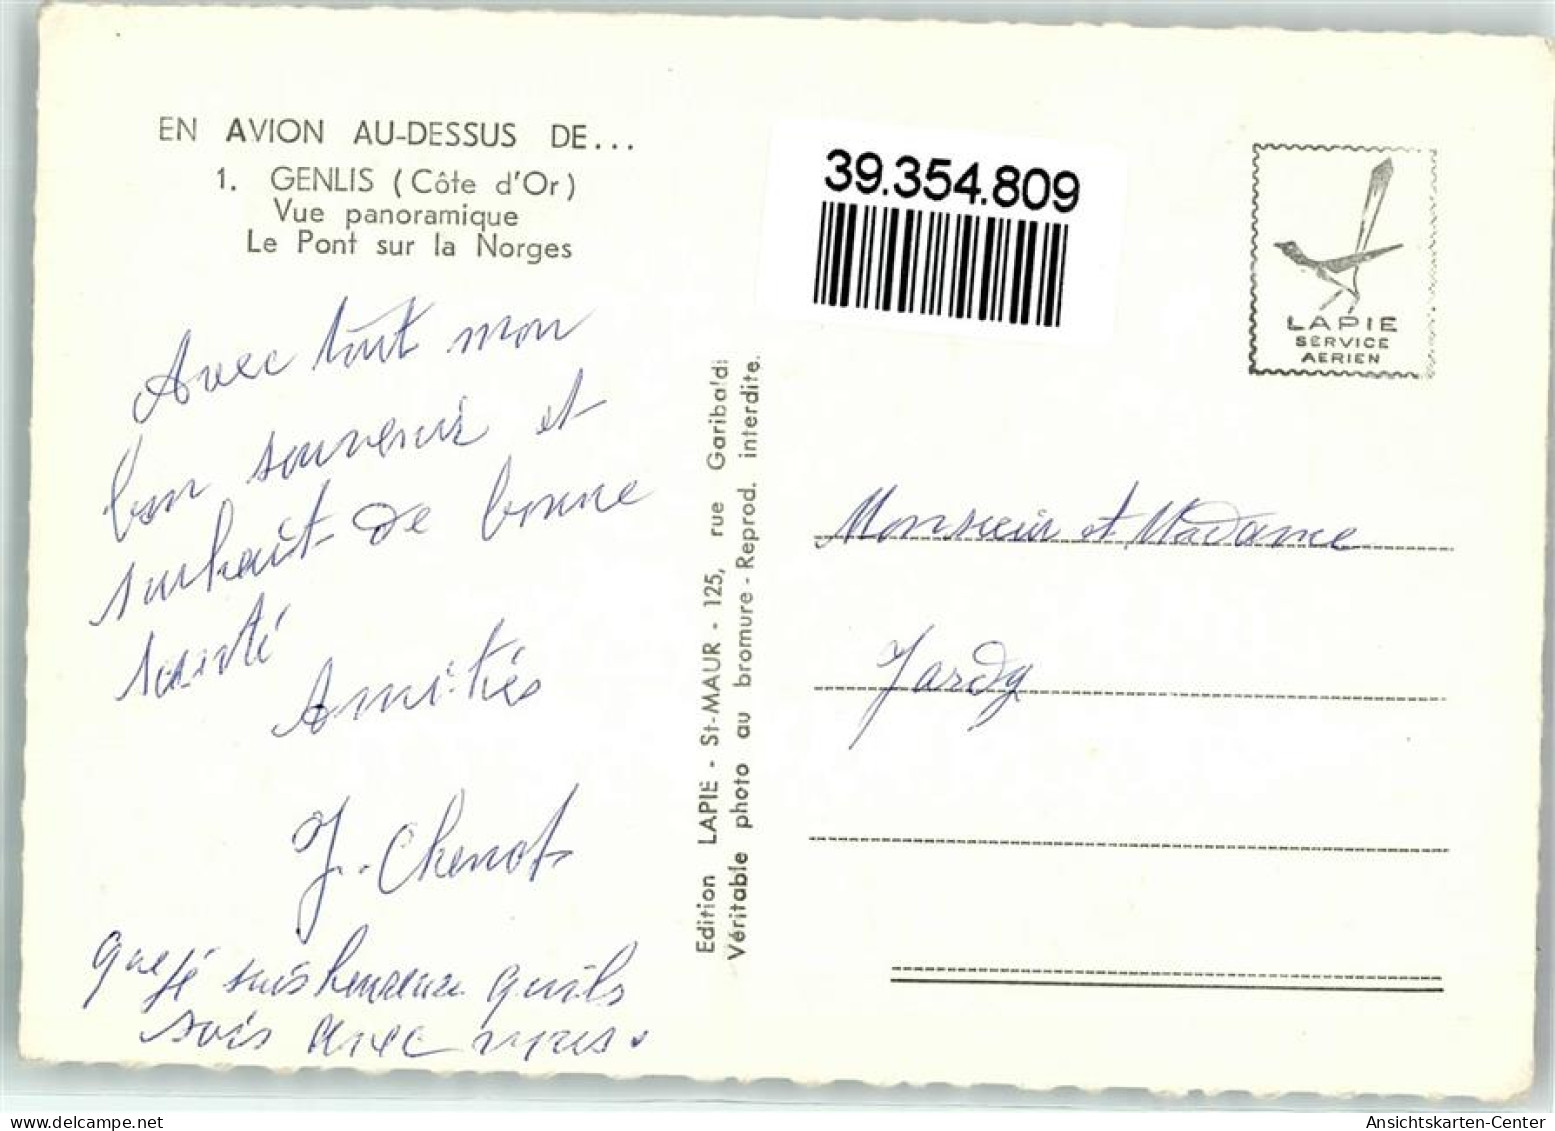 EN AVION AU-DESSUS DE...
1. GENLIS (Côte d'Or)
Vue panoramique
Le Pont sur la Norges
Avec tout mon
bon souvenir et
souhait de bonne
santé
Amitiés
J. Chenot
que je suis heureuse quils
sois avec vous.
Edition LAPIE - St-MAUR - 125, rue Garibaldi
Véritable photo au bromure - Reprod. interdite.
39.354.809
LAPIE
SERVICE
AERIEN
Monsieur et Madame
Jardy
delcampe.net
Ansichtskarten-Center